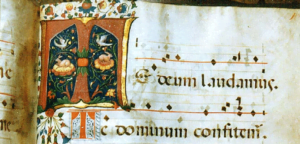 Te deum laudamus.
Te dominum confitem̅.